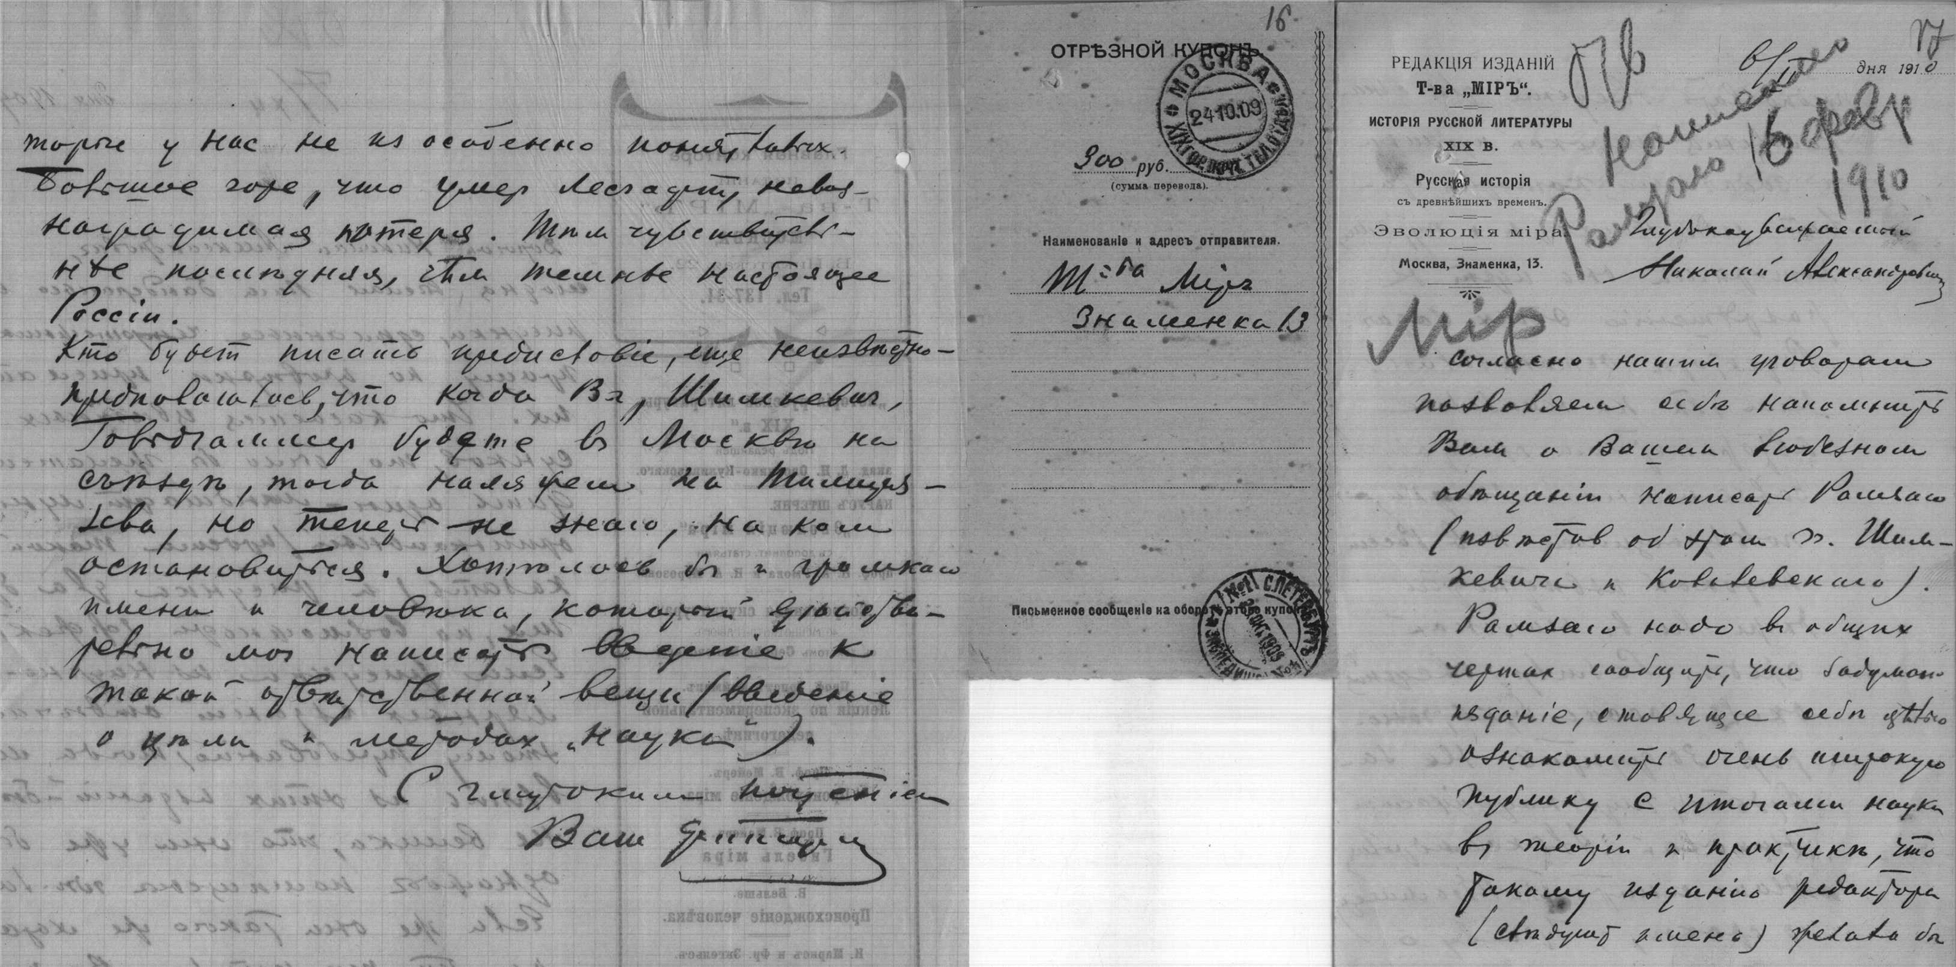 торые у нас не из особенно понятливых.
Большое горе, что умер Лесгафт, невоз-
наградимая потеря. Тем чувствитель-
нее последняя, чем темнее настоящее
Россіи.
Кто будет писать предисловіе, еще неизвѣстно-
предполагалось, что когда Вы, Шимкевич,
будете в Москвѣ на
съѣздѣ, тогда наляжем на Тимиря-
зева, но теперь не знаю, на ком
остановиться. Хотѣлось бы и громкаго
имени и человѣка, который дѣйстви-
тельно мог написать введеніе к
такой отвѣтственной вещи (введеніе
о цѣли и методах „науки").
С глубоким почтеніем
Ваш
16
ОТРѢЗНОЙ КУПОНЪ.
МОСКВА
24·10·09
300 руб.
(сумма перевода).
Наименованіе и адресъ отправителя.
Т-ва Міръ
Знаменка 13
Письменное сообщеніе на оборотѣ этого купона
С.ПЕТЕРБУРГЪ
17
РЕДАКЦІЯ ИЗДАНІЙ
Т-ва „МІРЪ“.
ИСТОРІЯ РУССКОЙ ЛИТЕРАТУРЫ
XIX в.
Русская исторія
съ древнѣйшихъ временъ.
Эволюція міра.
Москва, Знаменка, 13.
6/II дня 1910
Написано
Рамзаю 16 февр
1910
Мір
Глубокоуважаемый
Николай Александрович
согласно нашим уговорам
позволяем себѣ напомнить
Вам о Вашем любезном
обѣщаніи написать Рамзаю
(извѣстив об этом г. Шим-
кевича и Ковалевскаго).
Рамзаю надо в общих
чертах сообщить, что задуман
изданіе, ставящее себѣ цѣлью
ознакомить очень широкую
публику с итогами науки
в теоріи и практикѣ, что
такому изданію редактора
(слѣдуют имена) желали бы